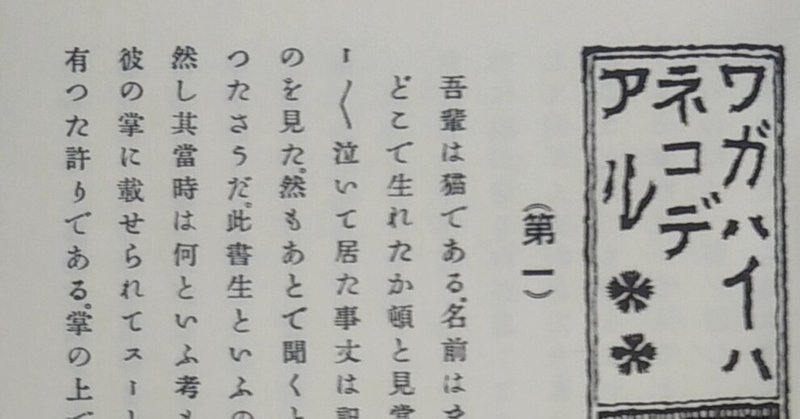 ワガハイハ
ネコデ
アル
（第一）
吾輩は猫である。名前はま
どこで生れたか頓と見當
ー〱泣いて居た事丈は記
のを見た。然もあとで聞くと
つたさうだ。此書生といふの
然し其當時は何といふ考も
彼の掌に載せられてスーと
有つた許りである。掌の上で